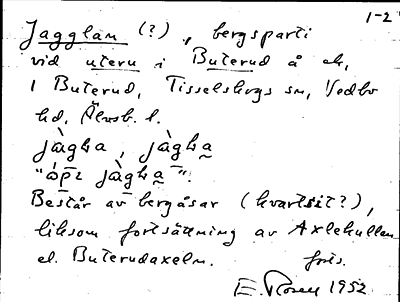 1-2
Jagglan (?), bergsparti
vid uteru i Buterud å ek,
1 Buterud, Tisselskogs sn, Vedbo
hd, Älvsb. l.
jàgha, jàgha̰
"ápi jàgha̰".
Består av bergåsar (kvartsit?),
liksom fortsättning av Axlekullen
el. Buterudaxeln. forts.
E. Rosell 1952